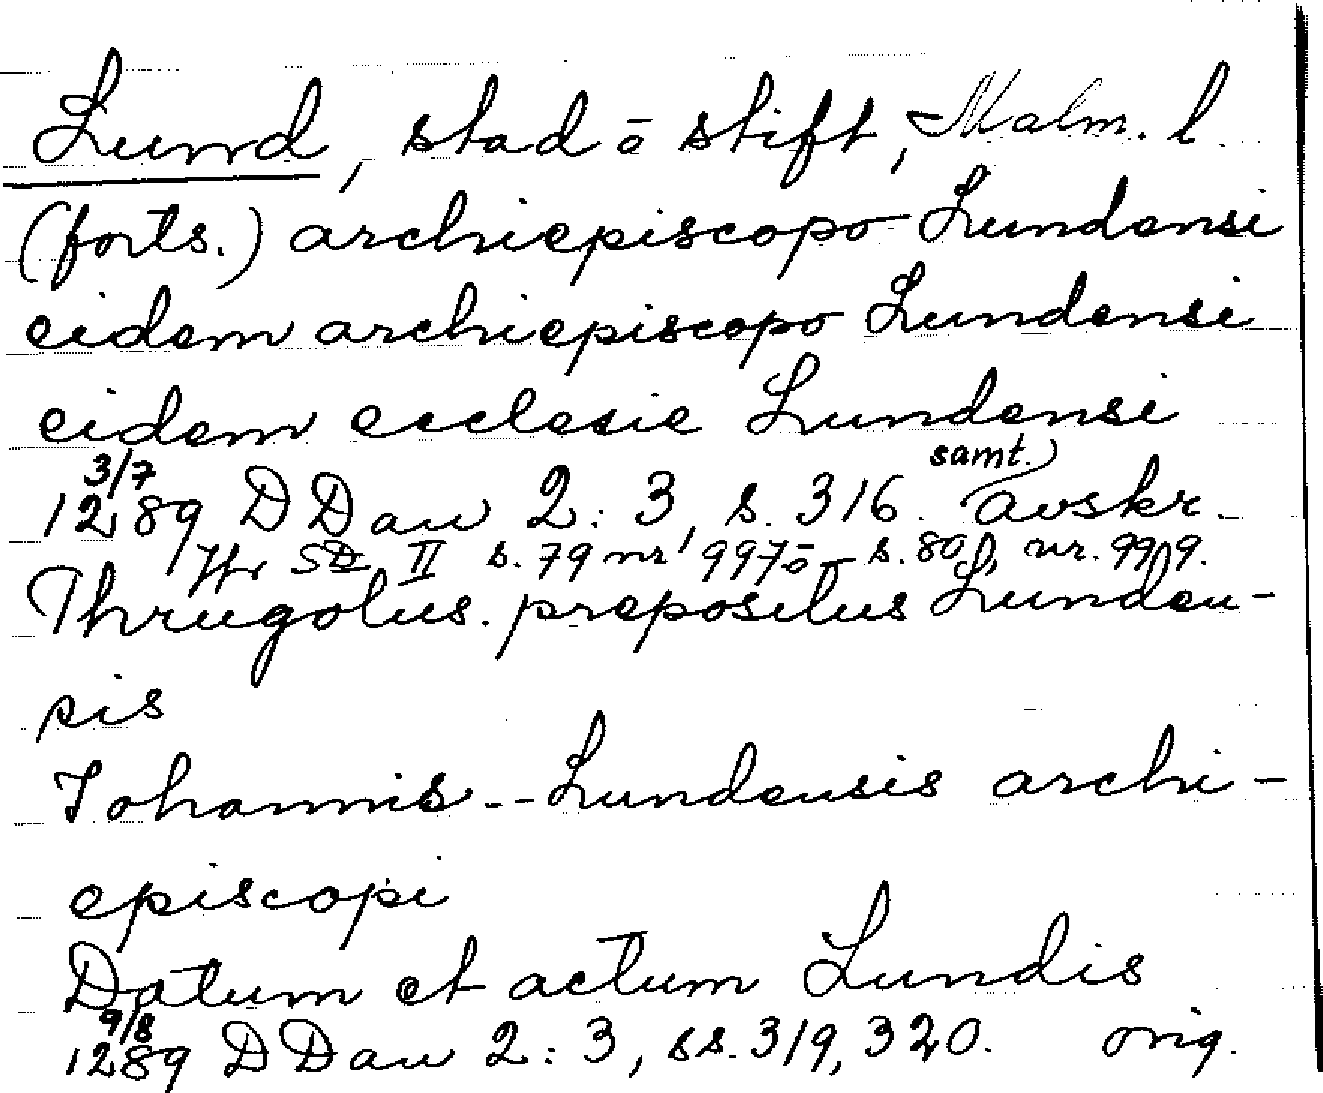 Lund, stad o stift, Malm. l.
(forts.) archiepiscopo Lundensi
eidem archiepiscopo Lundensi
eidem ecclesie Lundensi
3/7 samt.
1289 DDan 2:3, s. 316. avskr.
Jfr SD II s. 79 nr 997 o s. 80, nr. 999.
Thrugotus. prepositus Lunden-
sis
Iohannis -- Lundensis archi-
episcopi
Datum et actum Lundis
9/8
1289 DDan 2:3, ss. 319, 320. orig.